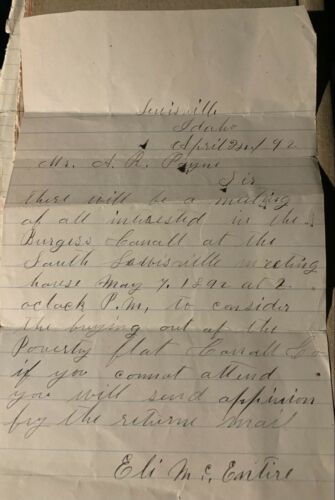 Lewisville
Idaho
April 2nd / 92
Mr. A. R. Payne
Sir
there will be a meeting
of all interested in the
Burgess Canall at the
South Lewisville meeting
house May 7. 1892 at 2.
oclock P.M. to consider
the buying out of the
Poverty flat Canall Co
if you connot attend
you will send appinion
by the returne mail
Eli Mc. Entire